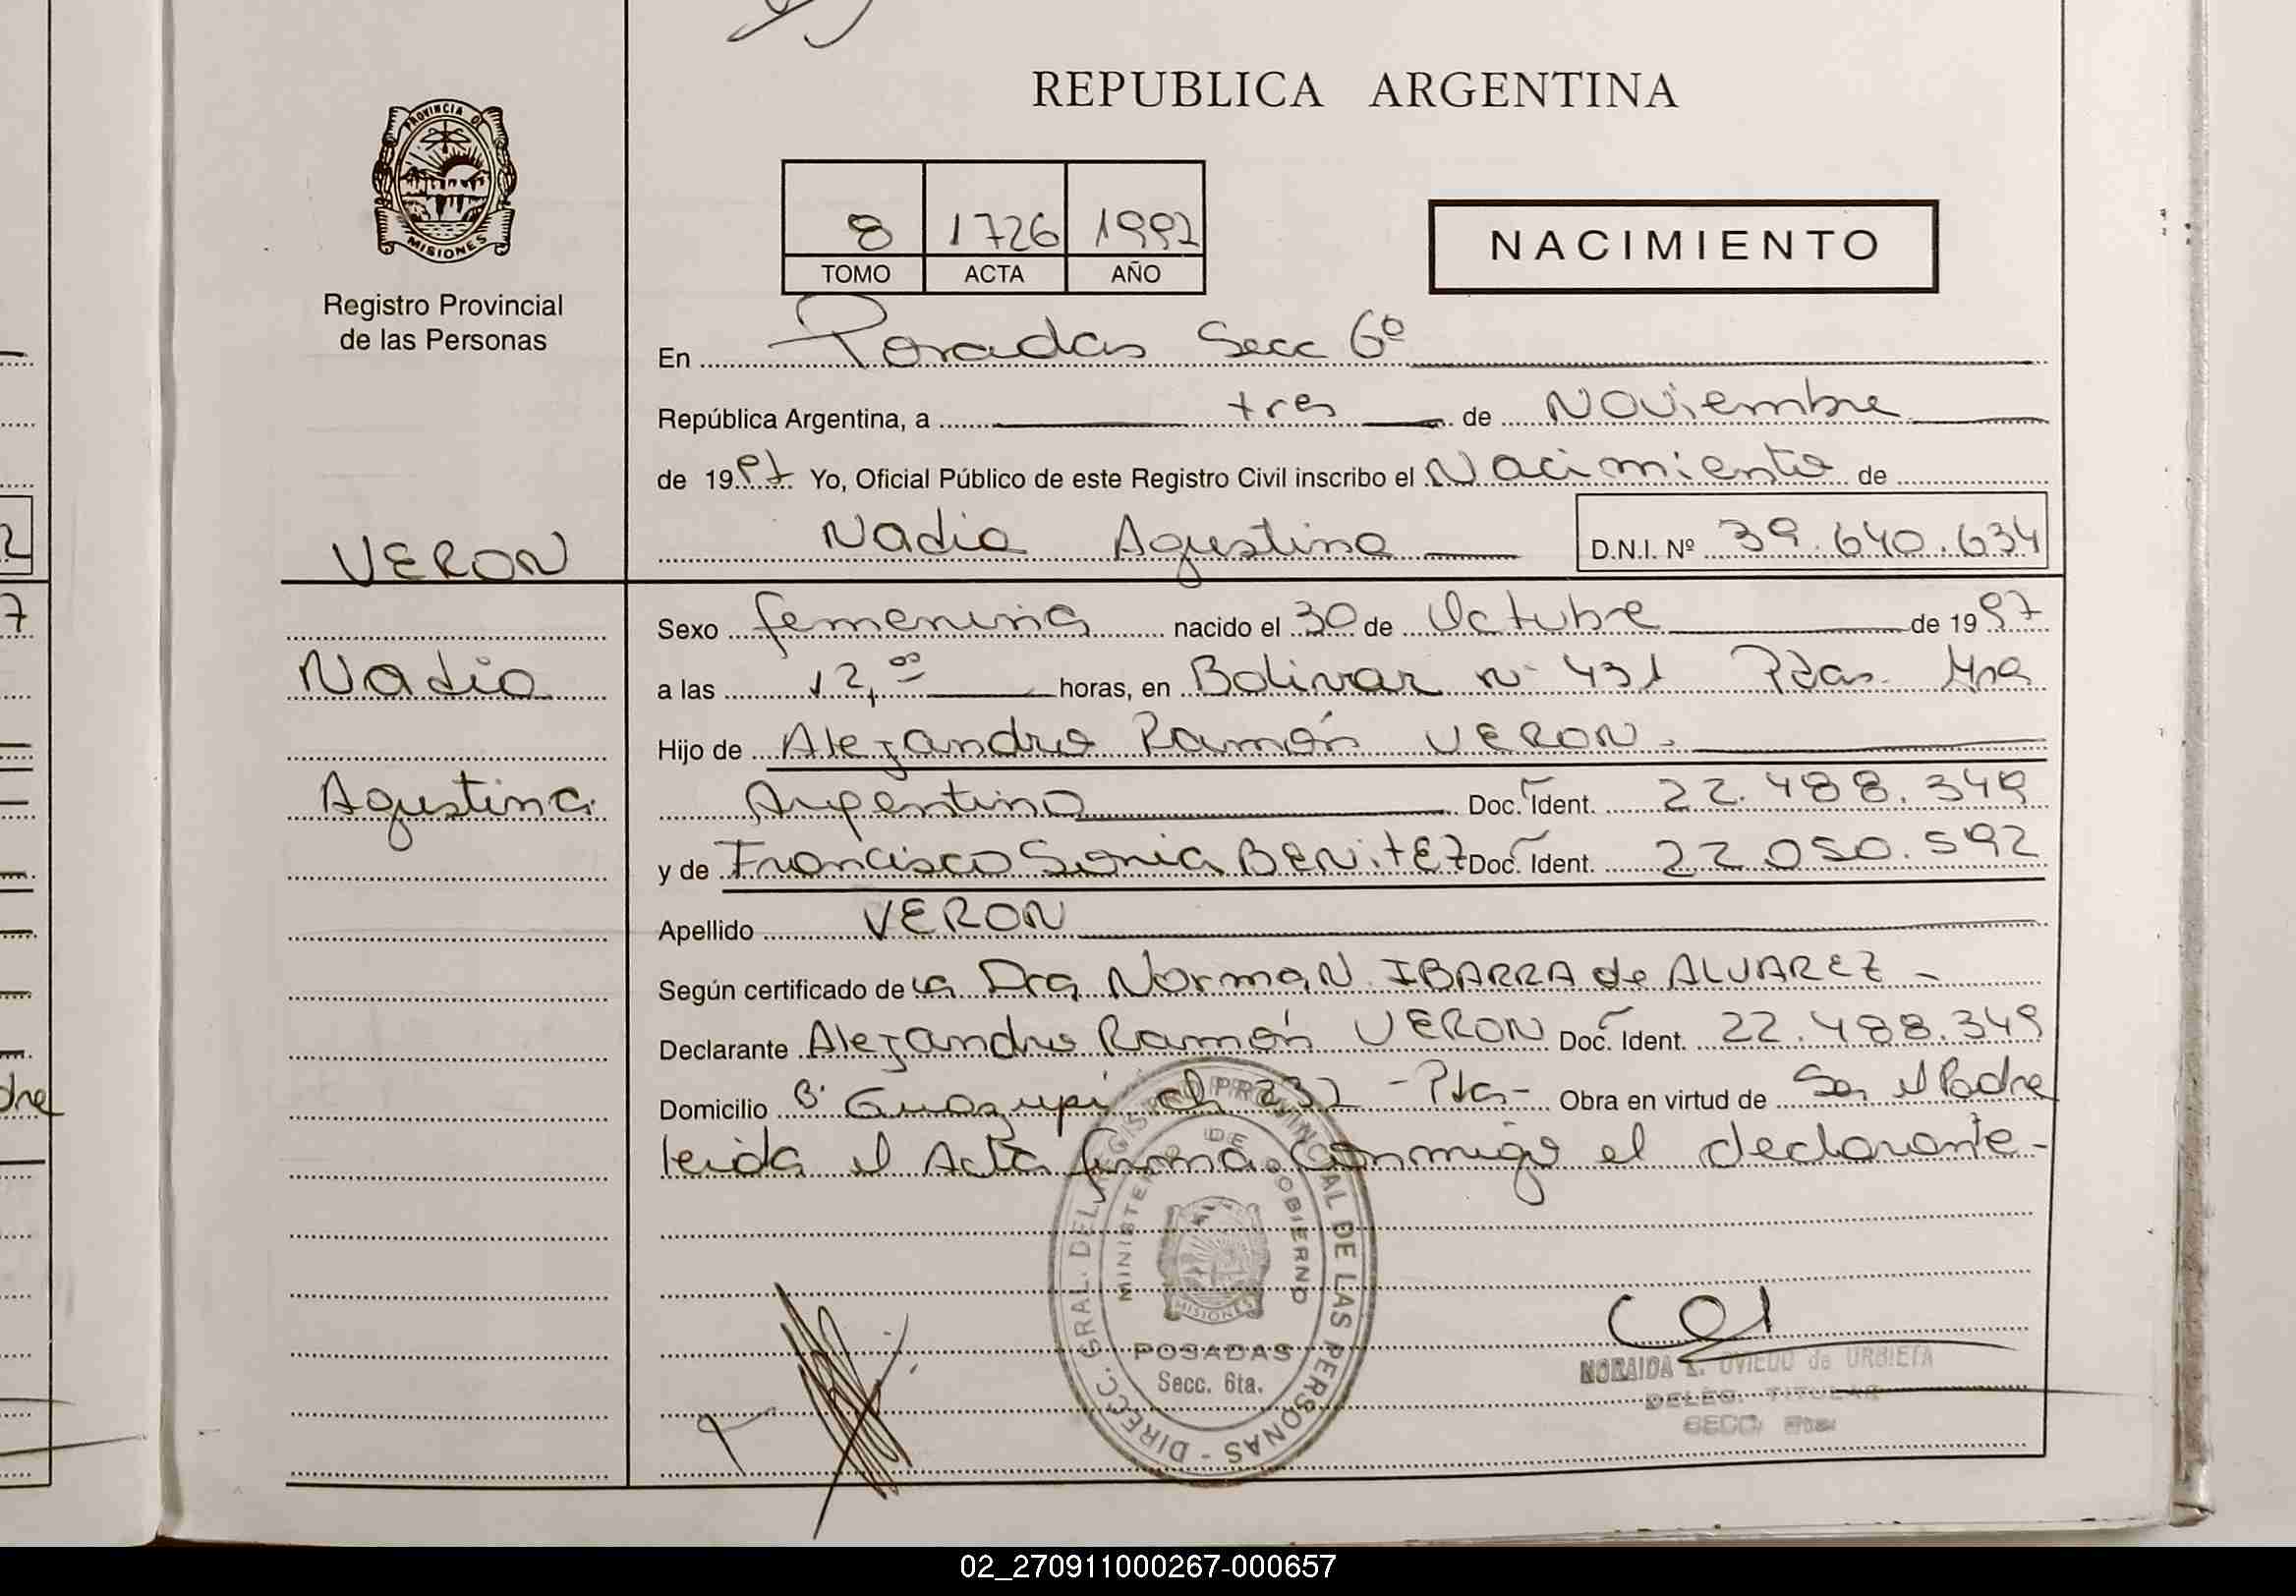 REPUBLICA ARGENTINA
PROVINCIA DE
MISIONES
Registro Provincial
de las Personas
8 1726 1997
TOMO ACTA AÑO
NACIMIENTO
En Posadas Secc 6º
República Argentina, a tres de Noviembre
de 1997 Yo, Oficial Público de este Registro Civil inscribo el Nacimiento de
VERON
Nadia Agustina D.N.I. Nº 39.640.634
Sexo femenina nacido el 30 de Octubre de 1997
Nadia
a las 12,00 horas, en Bolivar nº 431 Pdas. Mnes
Hijo de Alejandro Ramón VERON.
Agustina
Argentino Doc. Ident. 22.488.349
y de Francisca Sonia BENitEZ Doc. Ident. 22.050.592
Apellido VERON
Según certificado de la Dra Norma N. IBARRA de ALVAREZ -
Declarante Alejandro Ramón VERON Doc. Ident. 22.488.349
Domicilio Bº Guazupi ch 232 - Pdas - Obra en virtud de Ser el Padre
leida el Acta firma conmigo el declarante -
DIRECC. GRAL. DEL REGISTRO PROVINCIAL DE LAS PERSONAS -
MINISTERIO DE GOBIERNO
MISIONES
POSADAS
Secc. 6ta.
NORAIDA E. OVIEDO de URBIETA
DELEG. TITULAR
SECC. 6ta.
2
7
dre
02_270911000267-000657